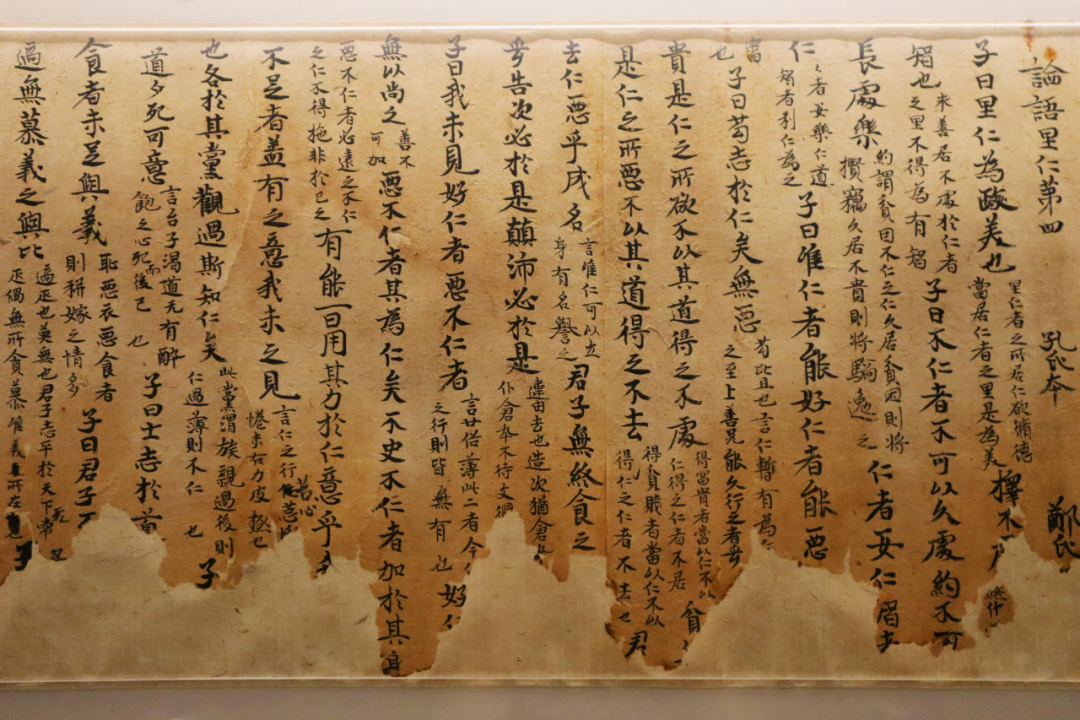 論語里仁第四 孔氏本 鄭氏
子曰里仁為美也 里仁者之所居仁欲猶德 當居仁者之里是為美 擇不處
智也 求善居不處於仁者 之里不得為有智 子曰不仁者不可以久處約不可
長處樂 約謂貧困不仁之仁久居貧困則將 攢竊久居不貴則將驕逸之 仁者安仁
仁 仁者安樂仁道 智者利仁為之 子曰唯仁者能好仁者能惡
當 也 子曰苟志於仁矣無惡 苟比且也言仁暫有為 之至上善況能久行之者乎
貴是仁之所欲不以其道得之不處 得富貴者當以仁不以 仁得之仁者不居 貧
是仁之所惡不以其道得之不去 得貧賤者當以仁不以 得仁之仁者不去也 君
去仁惡乎成名 言唯仁可以立 身有名譽之 君子無終食之
乎告次必於是顛沛必於是 違由去也造次猶倉 仆倉卒不待文
子曰我未見好仁者惡不仁者 言世俗薄此二者今 之行則皆無有也 好仁
無以尚之 善不 可加 惡不仁者其為仁矣不史不仁者加於其身
惡不仁者必遠之不仁 之仁不得施非於己之 有能一日用其力於仁意乎
不足者蓋有之意我未之見 言仁之行 苦心 倦未右力皮極也
也各於其黨觀過斯知仁矣 此黨謂族親過後則 仁過薄則不仁也 子
道夕死可意 言台子渴道无有醉 飽之心死而後已也 子曰士志於道
食者未足與義 恥惡衣惡食者 則耕嫁之情多 子曰君子
適無慕義之與比 適匹也莫無也君子志平於天下常 匹偶無所貪慕唯義所在 子